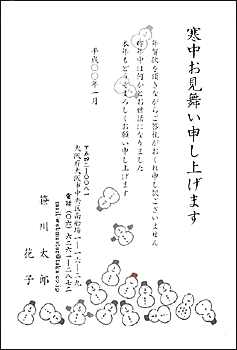 寒中お見舞い申し上げます
年賀状を頂きながらご答礼がおくれ申し訳ございません
昨年中は何かとお世話になりました
本年もどうぞよろしくお願い申し上げます
平成〇〇年一月
大阪府大阪市中央区南船場一ー一六ー二九
電話(〇六)六二六一ー二八七二
笹川太郎
花子